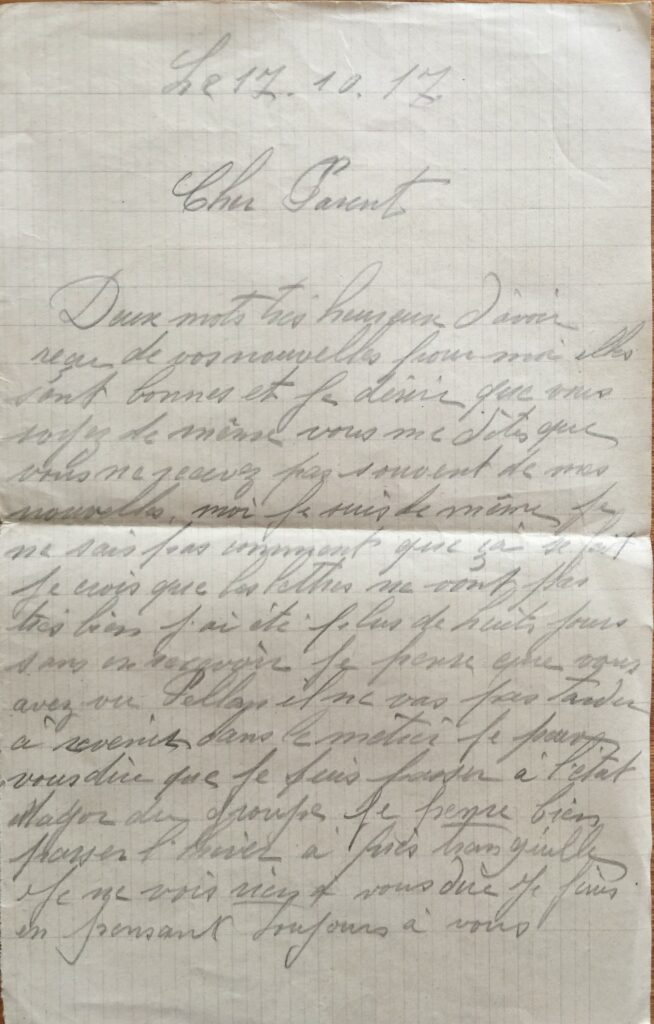 Le 17. 10. 17
Cher Parent
Deux mots très heureux d'avoir
reçu de vos nouvelles pour moi elles
sont bonnes et je désire que vous
soyez de même vous me dites que
vous ne recevez pas souvent de mes
nouvelles, moi je suis de même je
ne sais pas comment que ça se fait
je crois que les lettres ne vont pas
très bien j'ai été plus de huits jours
sans en recevoir je pense que vous
avez vu il ne vas pas tarder
à revenir dans le métier je peux
vous dire que je suis passer à l'état
Major du groupe je pense bien
passer l'hiver à près tranquille
Je ne vois rien à vous dire je finis
en pensant toujours à vous